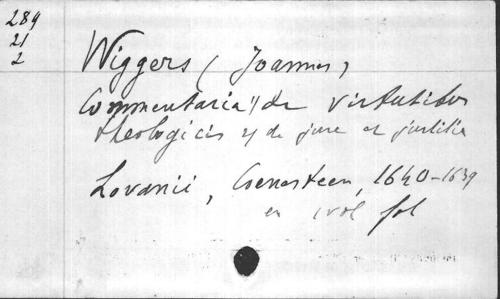 289
21
2
Wiggers (Joannes)
Commentaria 1) de virtutibus
theologicis 2) de jure et justitia
Lovanii, Coenesteen, 1640-1639
en 1 vol fol